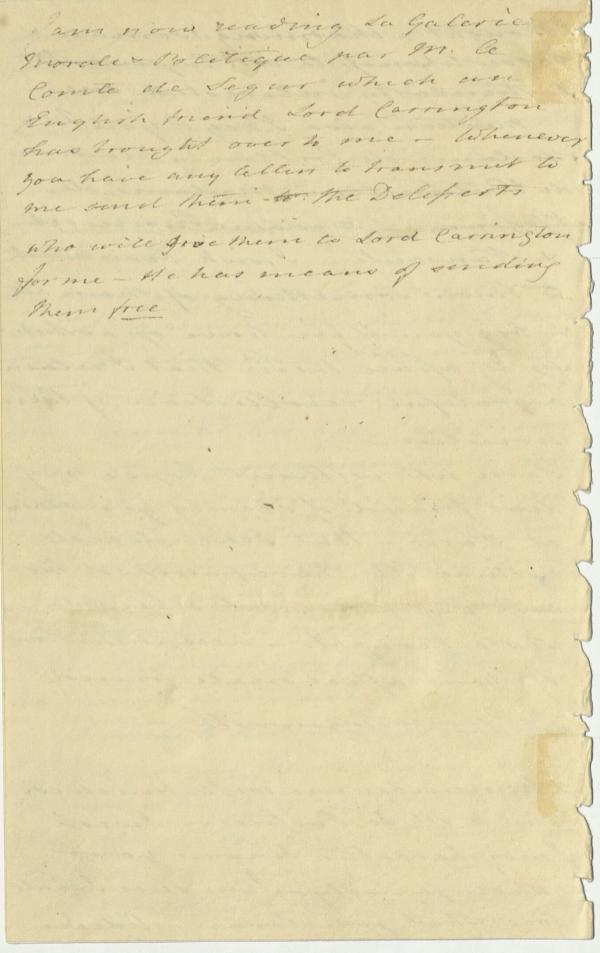 I am now reading La Galerie
Morale & Politique par M. le
Comte de Segur which an
English friend Lord Carrington
has brought over to me – Whenever
you have any letters to transmit to
me send them to the Delesserts
who will give them to Lord Carrington
for me – He has means of sending
them free